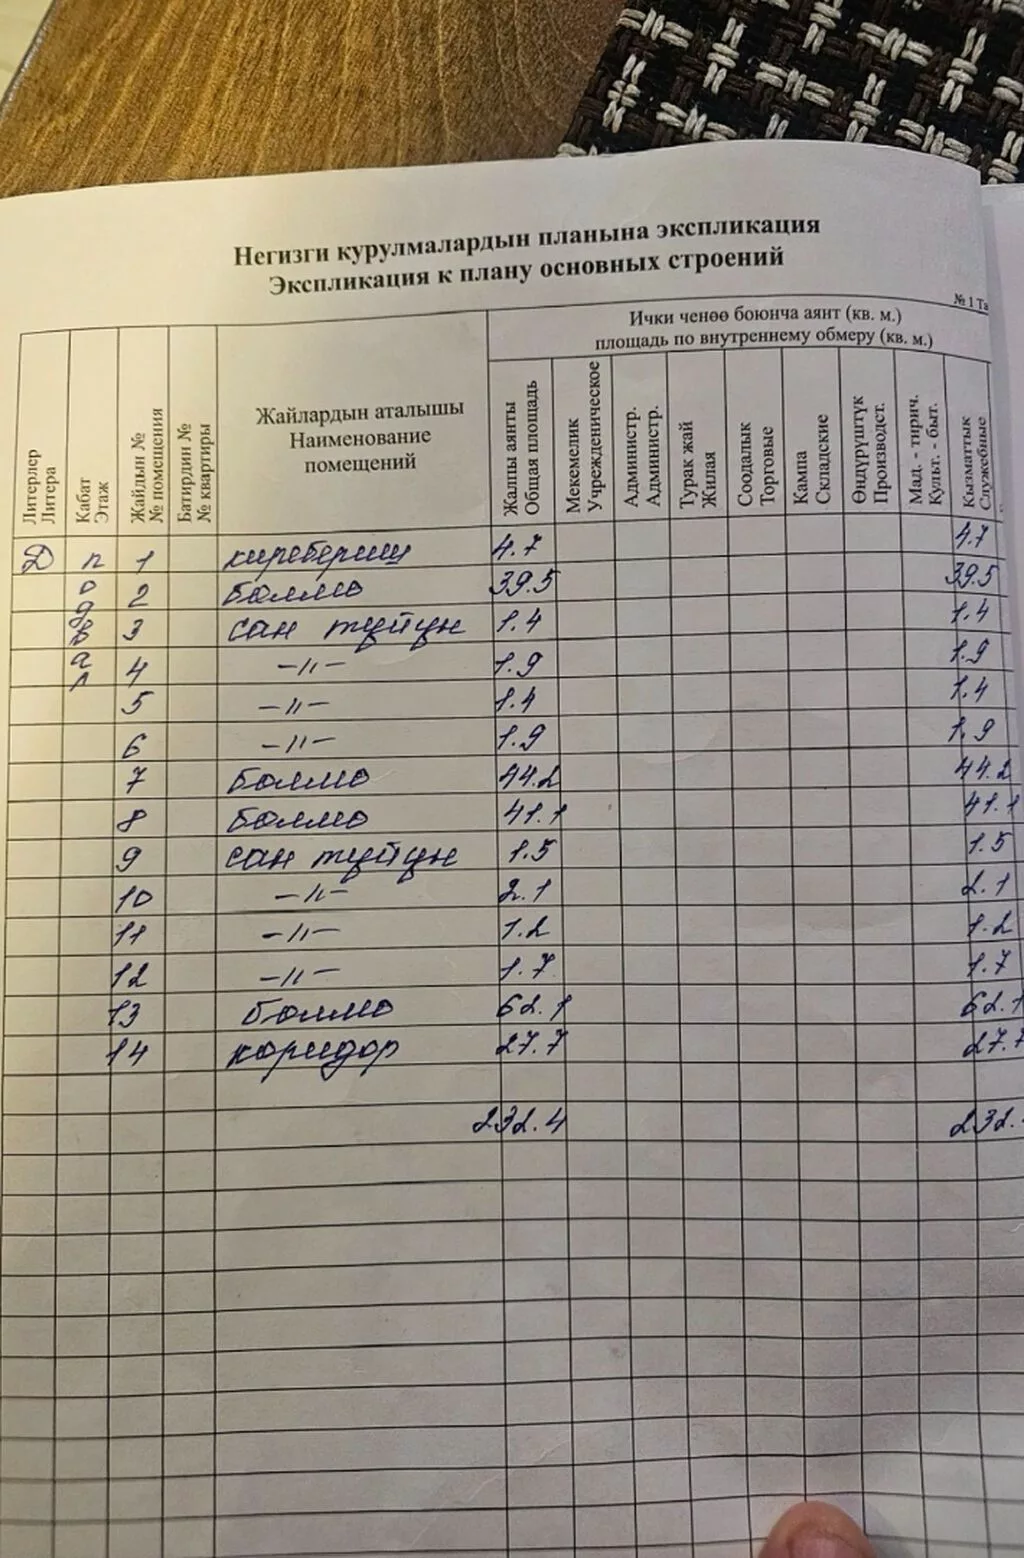 Негизги курулмалардын планына экспликация
Экспликация к плану основных строений
№ 1 Та
Литерлер Литера
Кабат Этаж
Жайдын № № помещения
Батирдин № № квартиры
Жайлардын аталышы
Наименование
помещений
Ички ченөө боюнча аянт (кв. м.)
площадь по внутреннему обмеру (кв. м.)
Жалпы аянты Общая площадь
Мекемелик Учрежденическое
Администр. Администр.
Турак жай Жилая
Соодалык Торговые
Кампа Складские
Өндүрүштүк Производст.
Мад. - тирич. Культ. - быт.
Кызматтык Служебные
Д подвал 1 кириебериш 4.7 4.7
2 бөлмө 39.5 39.5
3 сан түйүн 1.4 1.4
4 -"- 1.9 1.9
5 -"- 1.4 1.4
6 -"- 1.9 1.9
7 бөлмө 44.2 44.2
8 бөлмө 41.1 41.1
9 сан түйүн 1.5 1.5
10 -"- 2.1 2.1
11 -"- 1.2 1.2
12 -"- 1.7 1.7
13 бөлмө 62.1 62.1
14 коридор 27.7 27.7
232.4 232.